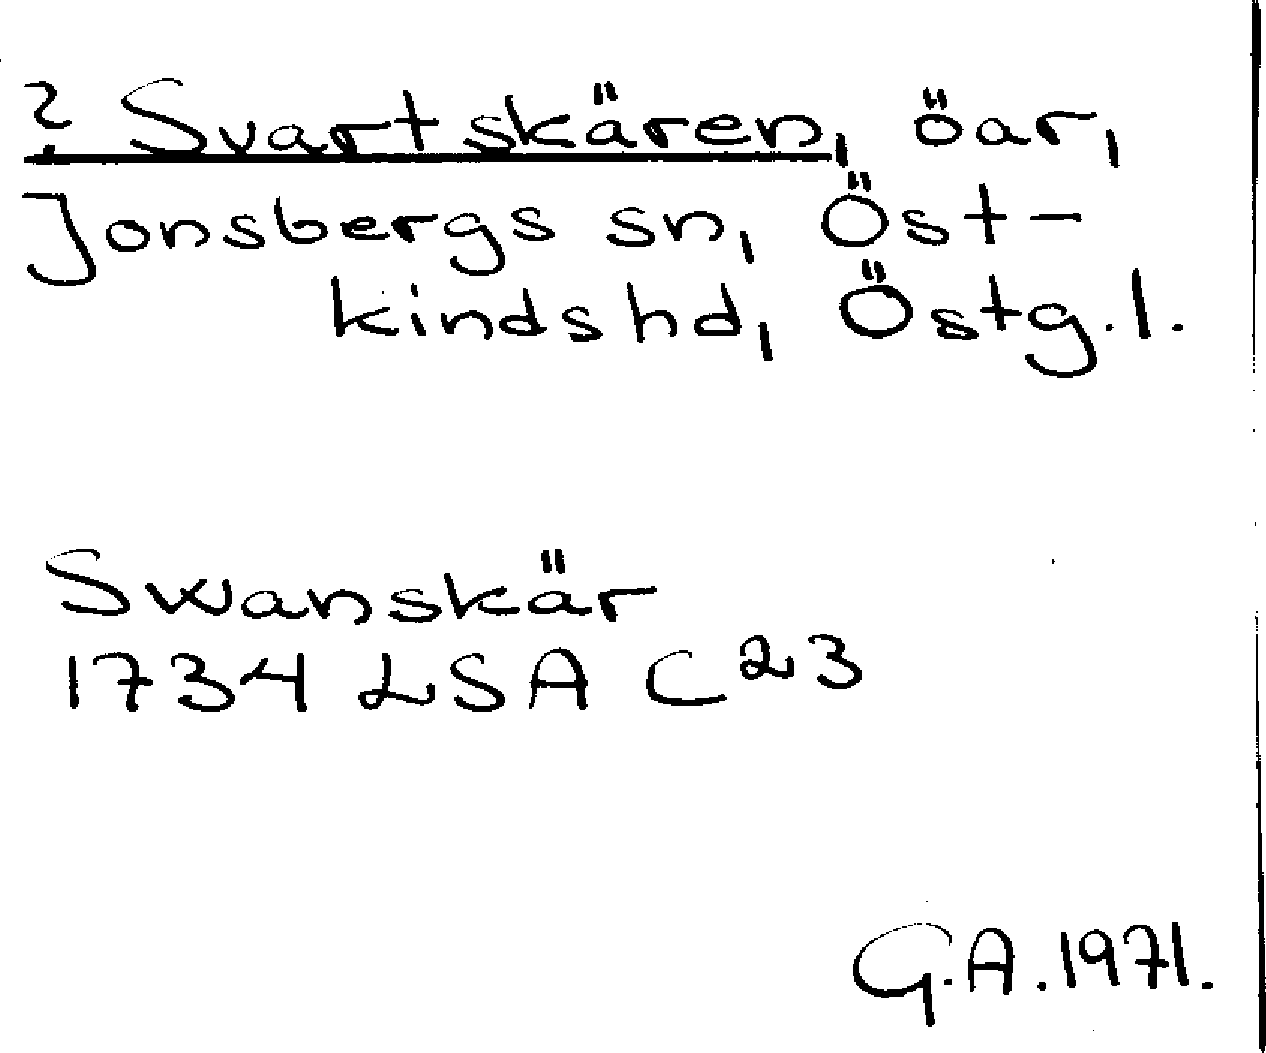 ? Svartskären, öar,
Jonsbergs sn, Öst-
kinds hd, Östg.l.
Swanskär
1734 LSA C23
G.A. 1971.